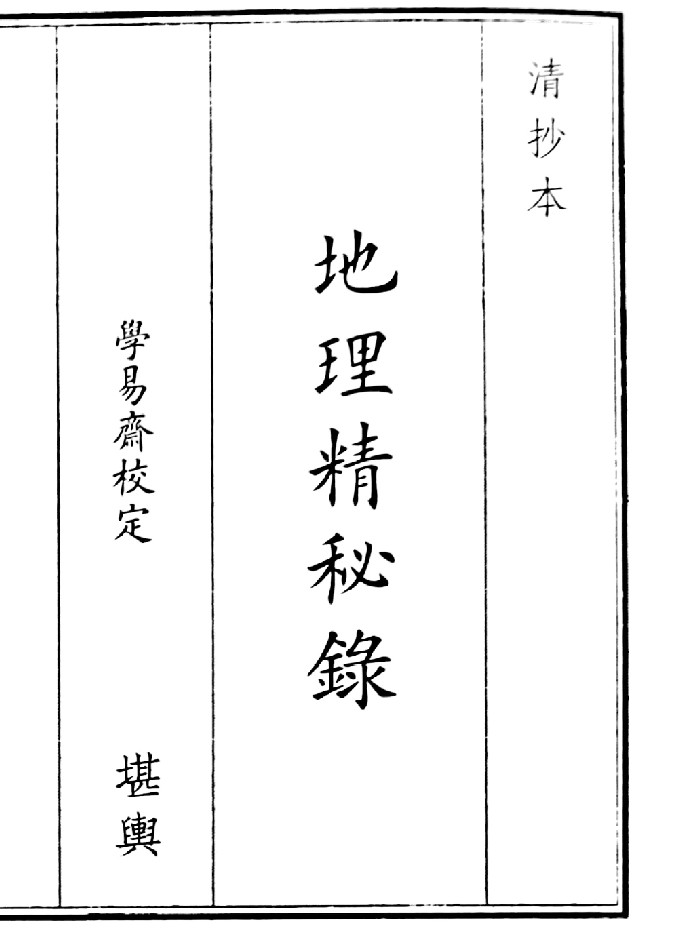 清抄本
地理精秘錄
學易齋校定
堪輿